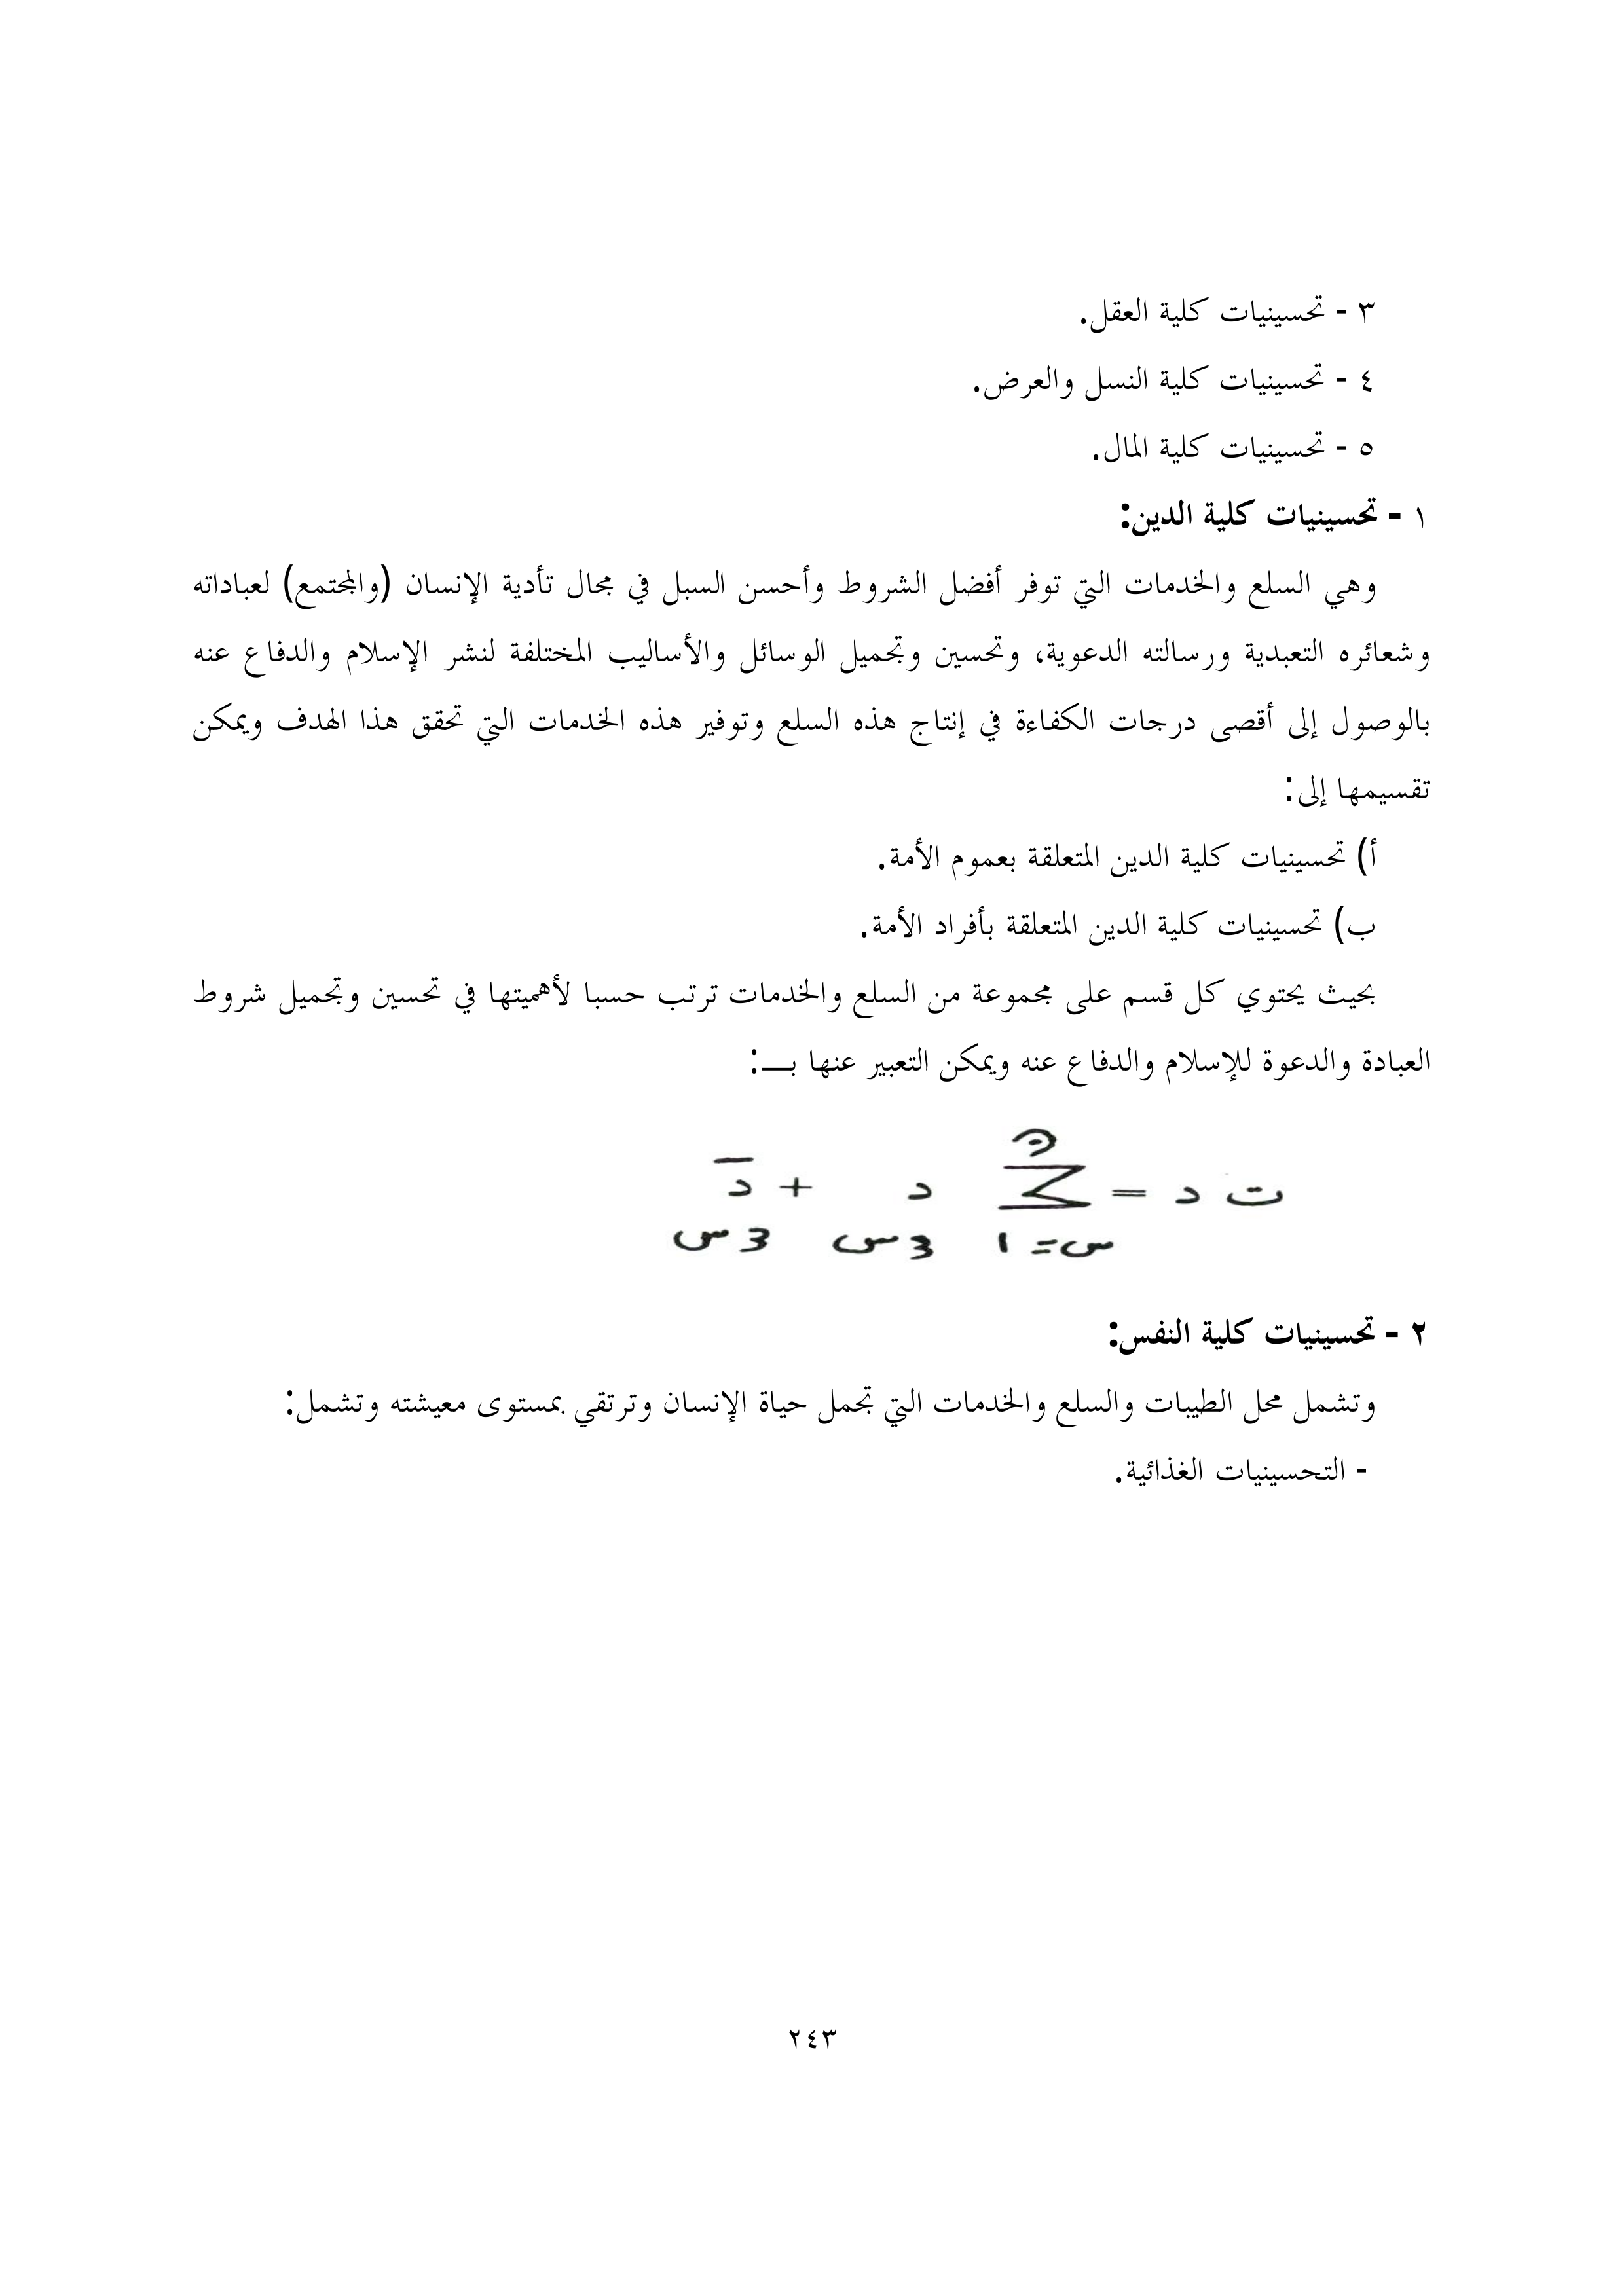 ٣ - تحسينيات كلية العقل.
٤ - تحسينيات كلية النسل والعرض.
٥ - تحسينيات كلية المال.
١ - تحسينيات كلية الدين:
وهي السلع والخدمات التي توفر أفضل الشروط وأحسن السبل في مجال تأدية الإنسان (والمجتمع) لعباداته
وشعائره التعبدية ورسالته الدعوية، وتحسين وتجميل الوسائل والأساليب المختلفة لنشر الإسلام والدفاع عنه
بالوصول إلى أقصى درجات الكفاءة في إنتاج هذه السلع وتوفير هذه الخدمات التي تحقق هذا الهدف ويمكن
تقسيمها إلى:
أ) تحسينيات كلية الدين المتعلقة بعموم الأمة.
ب) تحسينيات كلية الدين المتعلقة بأفراد الأمة.
بحيث يحتوي كل قسم على مجموعة من السلع والخدمات ترتب حسبا لأهميتها في تحسين وتجميل شروط
العبادة والدعوة للإسلام والدفاع عنه ويمكن التعبير عنها بـــ:
ن
ت د = ∑ د + د
س = ١ 3 س 3 س
٢ - تحسينيات كلية النفس:
وتشمل محل الطيبات والسلع والخدمات التي تجمل حياة الإنسان وترتقي بمستوى معيشته وتشمل:
- التحسينيات الغذائية.
٢٤٣